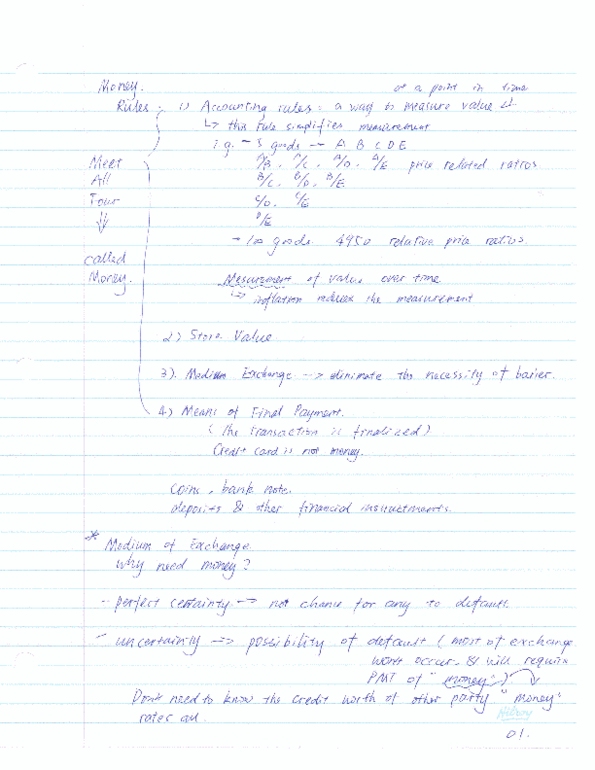 Money. at a point in time
Rules: 1) Accounting rules: a way to measure value
↳ this rule simplifies measurement
i.g. - 5 goods -- A B C D E
Meet A/B, A/C, A/D, A/E. price related ratios
All B/C, B/D, B/E
Four C/D, C/E
⇓ D/E
- 100 goods 4950 relative price ratios.
called
Money. Mesurement of value over time
↳ inflation reduces the measurement
2) Store Value
3). Medium Exchange --> eliminate the necessity of barier.
4) Means of Final Payment.
(the transaction is finalized)
Credit card is not money.
Coins, bank note.
deposits & other financial instruetments.
* Medium of Exchange
Why need money?
- perfect certainty -> not chance for any to default.
- uncertainly --> possibility of default (most of exchange
won't occur. & will require
PMT of "money")
Don't need to know the credit worth of other party "money"
rates all.
01.